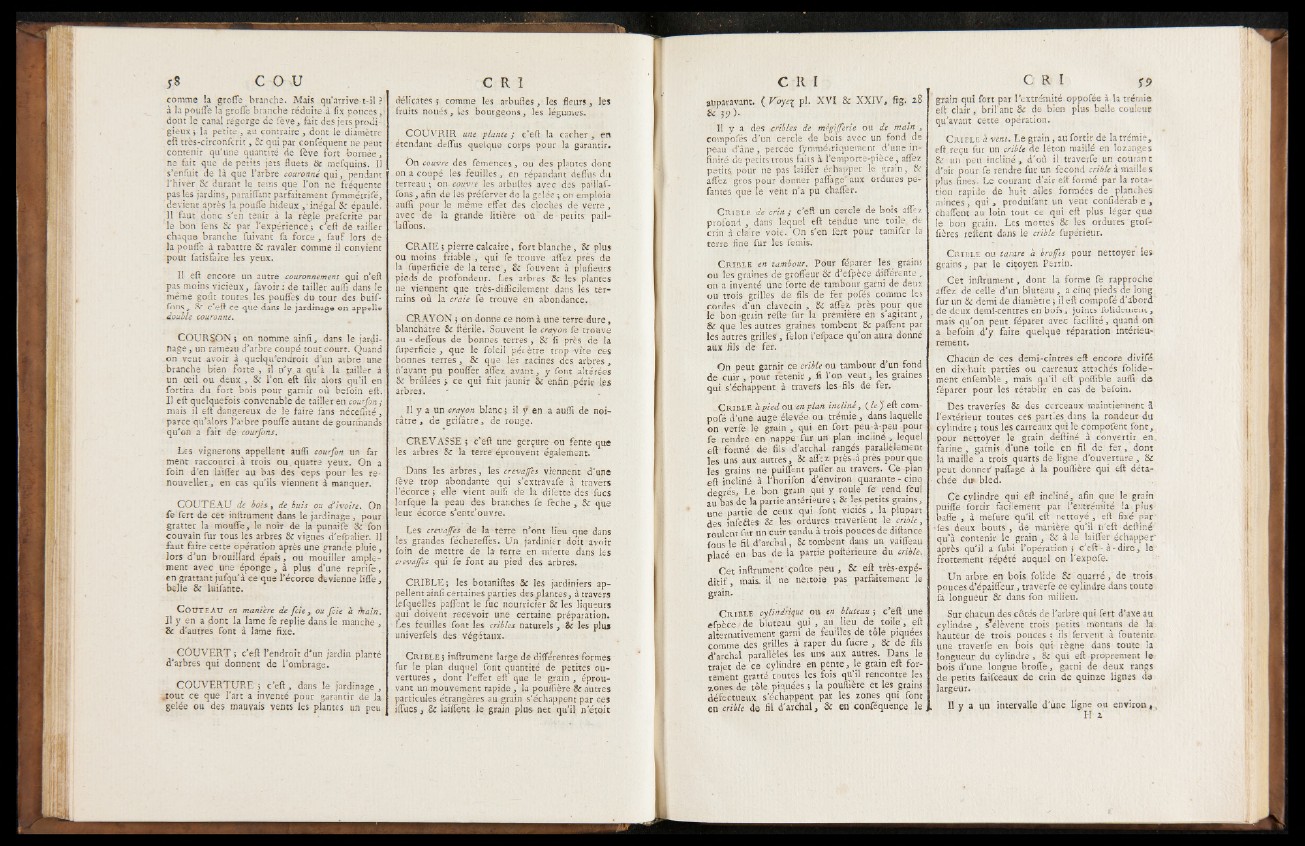 58 COU
comme la groſſe branche. Mais qu'arrive-t-il ?
à la pouſſe la groſſe branche réduite à ſix pouces,
dont le canal regorge de ſève, fait des jets prodi-
gieux ; la petite, au contraire, dont le diamètre
eſt très-circonſcrit, & qui par conſéquent ne peut
contenir qu'une quantité de ſève fort bornée,
ne fait que de petits jets fluets & meſquins. Il
s'enſuit de là que l'arbre couronné qui, pendant
l'hiver & durant le tems que l'on ne fréquente
pas les jardins, paroiſſant parfaitement ſymmétriſé,
devient après la pouſſe hideux, inégal & épaulé.
Il faut donc s'en tenir à la règle preſcrite par
le bon ſens & par l'expérience ; c'eſt de tailler
chaque branche ſuivant ſa force, ſauf lors de
la pouſſe à rabattre & ravaler comme il convient
pour ſatisfaire les yeux.
Il eſt encore un autre couronnement qui n'eſt
pas moins vicieux, ſavoir : de tailler auſſi dans le
même goût toutes les pouſſes du tour des buiſ-
ſons, & c'eſt ce que dans le jardinage on appelle
double couronne.
COURSON ; on nomme ainſi, dans le jardi-
nage, un rameau d'arbre coupé tout court. Quand
on veut avoir à quelqu'endroit d'un arbre une
branche bien forte, il n'y a qu'à la tailler à
un œil ou deux, & l'on eſt ſûr alors qu'il en
ſortira du fort bois pour garnir où beſoin eſt.
Il eſt quelquefois convenable de tailler en courſon ;
mais il eſt dangereux de le faire ſans néceſſité,
parce qu'alors l'arbre pouſſe autant de gourmands
qu'on a fait de courſons.
Les vignerons appellent auſſi courſon un ſar-
ment raccourci à trois ou quatre yeux. On a
ſoin d'en laiſſer au bas des ceps pour les re-
nouveller, en cas qu'ils viennent à manquer.
COUTEAU de bois, de buis ou d'ivoire. On
ſe ſert de cet inſtrument dans le jardinage, pour
gratter la mouſſe, le noir de la punaiſe & ſon
couvain ſur tous les arbres & vignes d'eſpalier. Il
faut faire cette opération après une grande pluie,
lors d'un brouillard épais, ou mouiller ample-
ment avec une éponge, à plus d'une repriſe,
en grattant juſqu'à ce que l'écorce devienne liſſe,
belle & luiſante.
COUTEAU en manière de ſcie, ou ſcie à main.
Il y en a dont la lame ſe replie dans le manche,
& d'autres ſont à lame fixe.
COUVERT ; c'eſt l'endroit d'un jardin planté
d'arbres qui donnent de l'ombrage.
COUVERTURE ; c'eſt, dans le jardinage,
tout ce que l'art a inventé pour garantir de la
gelée ou des mauvais vents les plantes un peu
CRI
délicates ; comme les arbuſtes, les fleurs, les
fruits noués, les bourgeons, les légumes.
COUVRIR une plante ; c'eſt la cacher, en
étendant deſſus quelque corps pour la garantir.
On couvre des ſemences, ou des plantes dont
on a coupé les feuilles, en répandant deſſus du
terreau ; on couvre les arbuſtes avec des paillaſ-
ſons, afin de les préſerver de la gelée ; on emploie
auſſi pour le même effet des cloches de verre,
avec de la grande litière ou de petits pail-
laſſons.
CRAIE ; pierre calcaire, fort blanche, & plus
ou moins friable, qui ſe trouve aſſez près de
la ſuperficie de la terre, & ſouvent à pluſieurs
pieds de profondeur. Les arbres & les plantes
ne viennent que très-difficilement dans les ter-
rains où la craie ſe trouve en abondance.
CRAYON ; on donne ce nom à une terre dure,
blanchâtre & ſtérile. Souvent le crayon ſe trouve
au-deſſous de bonnes terres, & ſi près de la
ſuperficie, que le ſoleil pénètre trop vîte ces
bonnes terres, & que les racines des arbres,
n'ayant pu pouſſer aſſez avant, y ſont altérées
& brûlées ; ce qui fait jaunir & enfin périr les
arbres.
Il y a un crayon blanc ; il y en a auſſi de noi-
râtre, de griſâtre, de rouge.
CREVASSE ; c'eſt une gerçure ou fente que
les arbres & la terre éprouvent également.
Dans les arbres, les crevaſſes viennent d'une
ſève trop abondante qui s'extravaſe à travers
l'écorce ; elle vient auſſi de la diſette des ſucs
lorſque la peau des branches ſe ſèche, & que
leur écorce s'entr'ouvre.
Les crevaſſes de la terre n'ont lieu que dans
les grandes ſéchereſſes. Un jardinier doit avoir
ſoin de mettre de la terre en miette dans les
crevaſſes qui ſe font au pied des arbres.
CRIBLE ; les botaniſtes & les jardiniers ap-
pellent ainſi certaines parties des plantes, à travers
leſquelles paſſent le ſuc nourricier & les liqueurs
qui doivent recevoir une certaine préparation.
Les feuilles ſont les cribles naturels, & les plus
univerſels des végétaux.
CRIBLE ; inſtrument large de différentes formes
ſur le plan duquel ſont quantité de petites ou-
vertures, dont l'effet eſt que le grain, éprou-
vant un mouvement rapide, la pouſſière & autres
particules étrangères au grain s'échappent par ces
iſſues, & laiſſent le grain plus net qu'il n'étoit
CRI
auparavant. (Voyez pl. XVI & XXIV, fig. 28
& 39).
Il y a des cribles de mégiſſerie ou de main,
compoſés d'un cercle de bois avec un fond de
peau d'âne, percée ſymmétriquement d'une in-
finité de petits trous faits à l'emporte-pièce, aſſez
petits pour ne pas laiſſer échapper le grain, &
aſſez gros pour donner paſſage aux ordures pe-
ſantes que le vent n'a pu chaſſer.
CRIBLE de crin ; c'eſt un cercle de bois aſſez
profond, dans lequel eſt tendue une toile de
crin à claire voie. On s'en ſert pour tamiſer la
terre fine ſur les ſemis.
CRIBLE en tambour. Pour ſéparer les grains
ou les graines de groſſeur & d'eſpèce différente,
on a inventé une ſorte de tambour garni de deux
ou trois grilles de fils de fer poſés comme les
cordes d'un clavecin, & aſſez près pour que
le bon grain reſte ſur la première en s'agitant,
& que les autres graines tombent & paſſent par
les autres grilles, ſelon l'eſpace qu'on aura donné
aux fils de fer.
On peut garnir ce crible ou tambour d'un fond
de cuir, pour retenir, ſi l'on veut, les graines
qui s'échappent à travers les fils de fer.
CRIBLE à pied ou en plan incliné, (le) eſt com-
poſé d'une auge élevée ou trémie, dans laquelle
on verſe le grain, qui en ſort peu-à-peu pour
ſe rendre en nappe ſur un plan incliné, lequel
eſt formé de fils d'archal rangés parallèlement
les uns aux autres, & aſſez près-à-près pour que
les grains ne puiſſent paſſer au travers. Ce plan
eſt incliné à l'horiſon d'environ quarante-cinq
degrés. Le bon grain qui y roule ſe rend ſeul
au bas de la partie antérieure ; & les petits grains,
une partie de ceux qui ſont viciés, la plupart
des inſectes & les ordures traverſent le crible,
roulent ſur un cuir tendu à trois pouces de diſtance
ſous le fil d'archal, & tombent dans un vaiſſeau
placé en bas de la partie poſtérieure du crible.
Cet inſtrument coûte peu, & eſt très-expé-
ditif, mais il ne nettoie pas parfaitement le
grain.
CRIBLE cylindrique ou en bluteau ; c'eſt une
eſpèce de bluteau qui, au lieu de toile, eſt
alternativement garni de feuilles de tôle piquées
comme des grilles à raper du ſucre, & de fils
d'archal parallèles les uns aux autres. Dans le
trajet de ce cylindre en pente, le grain eſt for-
tement gratté toutes les fois qu'il rencontre les
zones de tôle piquées ; la pouſſière et les grains
défectueux s'échappent par les zones qui ſont
en crible de fil d'archal, & en conſéquence le
CRI 59
grain qui ſort par l'extrémité oppoſée à la trémie
eſt clair, brillant & de bien plus belle couleur
qu'avant cette opération.
CRIBLE à vent. Le grain, au ſortir de la trémie,
eſt reçu ſur un crible de léton maillé en lozanges
& un peu incliné, d'où il traverſe un courant
d'air pour ſe rendre ſur un ſecond crible à mailles
plus fines. Le courant d'air eſt formé par la rota-
tion rapide de huit aîles formées de planches
minces, qui, produiſant un vent conſidérable,
chaſſent au loin tout ce qui eſt plus léger que
le bon grain. Les mottes & les ordures groſ-
ſières reſtent dans le crible ſupérieur.
CRIBLE ou tarare à broſſes pour nettoyer les
grains, par le citoyen Perrin.
Cet inſtrument, dont la forme ſe rapproche
aſſez de celle d'un bluteau, a cinq pieds de long
ſur un & demi de diamètre ; il eſt compoſé d'abord
de deux demi-centres en bois, joints ſolidement,
mais qu'on peut ſéparer avec facilité, quand on
a beſoin d'y faire quelque réparation intérieu-
rement.
Chacun de ces demi-cintres eſt encore diviſé
en dix-huit parties ou carreaux attachés ſolide-
ment enſemble, mais qu'il eſt poſſible auſſi de
ſéparer pour les rétablir en cas de beſoin.
Des traverſes & des cerceaux maintiennent à
l'extérieur toutes ces parties dans la rondeur du
cylindre ; tous les carreaux qui le compoſent ſont,
pour nettoyer le grain deſtiné à convertir en
farine, garnis d'une toile en fil de fer, dont
la maille a trois quarts de ligne d'ouverture, &
peut donner paſſage à la pouſſière qui eſt déta-
chée du bled.
Ce cylindre qui eſt incliné, afin que le grain
puiſſe ſortir facilement par l'extrémité la plus
baſſe, à meſure qu'il eſt nettoyé, eſt fixé par
ſes deux bouts, de manière qu'il n'eſt deſtiné
qu'à contenir le grain, & à le laiſſer échapper
après qu'il a ſubi l'opération ; c'eſt-à-dire, le
frottement répété auquel on l'expoſe.
Un arbre en bois ſolide & quarré, de trois
pouces d'épaiſſeur, traverſe ce cylindre dans toute
ſa longueur & dans ſon milieu.
Sur chacun des côtés de l'arbre qui ſert d'axe au
cylindre, s'élèvent trois petits montans de la
hauteur de trois pouces : ils ſervent à ſoutenir
une traverſe en bois qui règne dans toute la
longueur du cylindre, & qui eſt proprement le
bois d'une longue broſſe, garni de deux rangs
de petits faiſceaux de crin de quinze lignes de
largeur.
Il y a un intervalle d'une ligne ou environ,
H 2